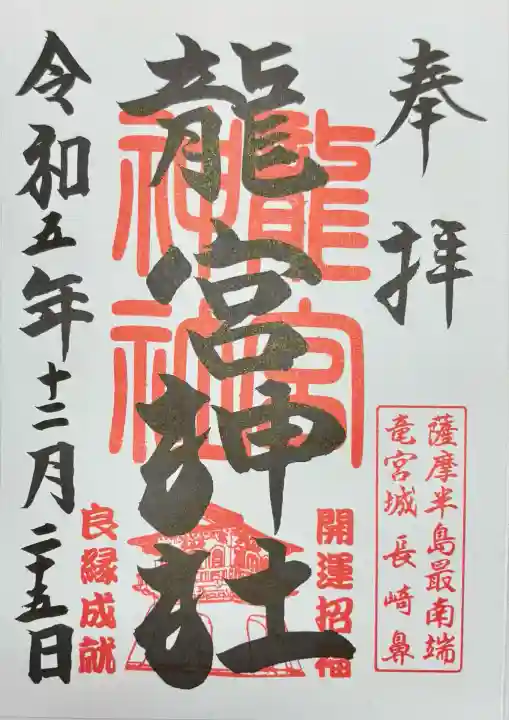 奉拝
薩摩半島最南端
竜宮城 長崎鼻
開運招福
龍宮神社
龍宮
神社
良縁成就
令和五年十二月二十五日